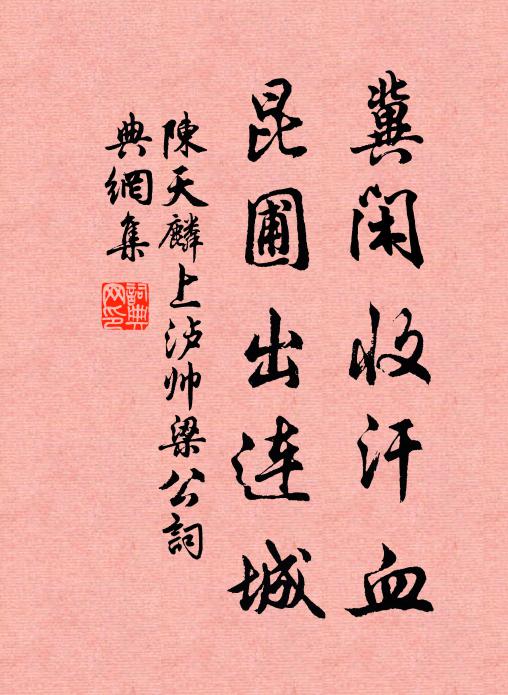 冀闲收汗血
昆圃出连城
陳天麟上泸帅梁公詞
典網集
詞典网印